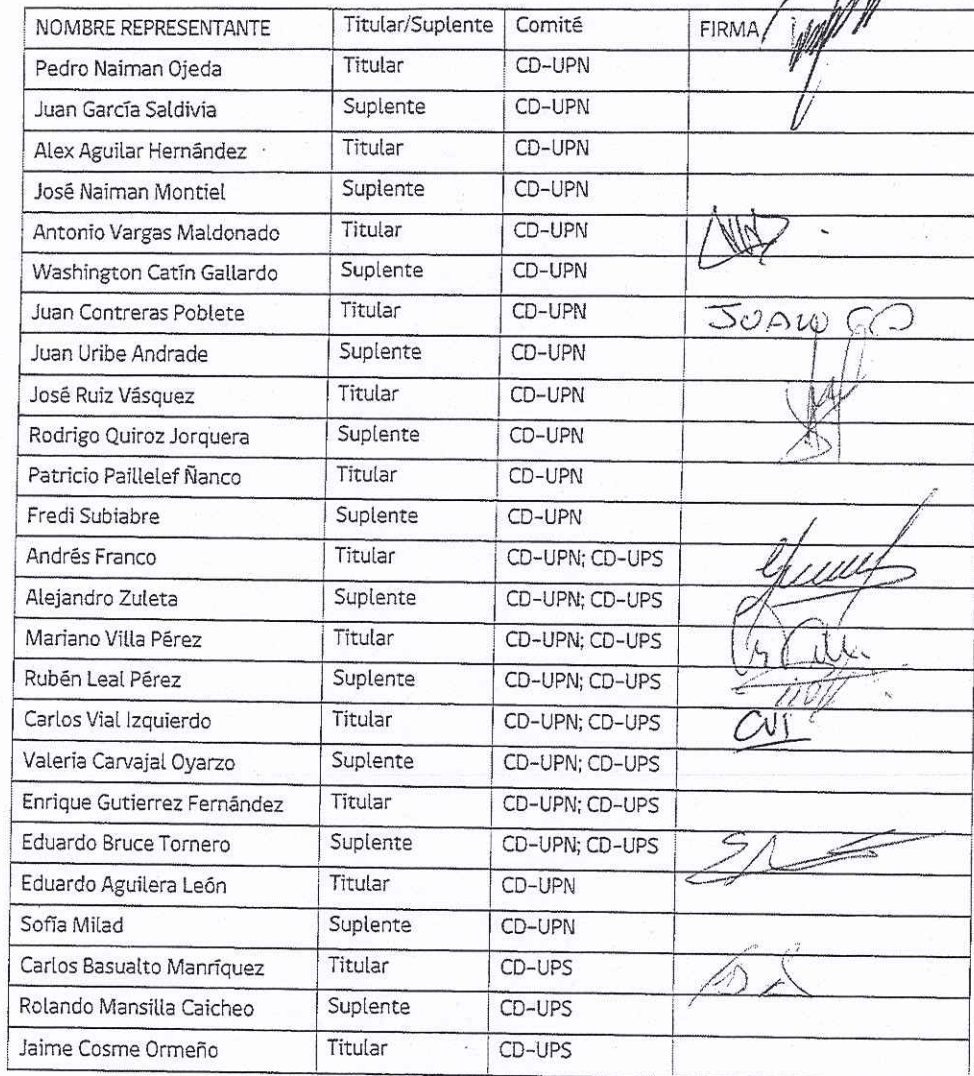 NOMBRE REPRESENTANTE Titular/Suplente Comité FIRMA
Pedro Naiman Ojeda Titular CD-UPN
Juan García Saldivia Suplente CD-UPN
Alex Aguilar Hernández Titular CD-UPN
José Naiman Montiel Suplente CD-UPN
Antonio Vargas Maldonado Titular CD-UPN
Washington Catín Gallardo Suplente CD-UPN
Juan Contreras Poblete Titular CD-UPN
Juan Uribe Andrade Suplente CD-UPN
José Ruiz Vásquez Titular CD-UPN
Rodrigo Quiroz Jorquera Suplente CD-UPN
Patricio Paillelef Ñanco Titular CD-UPN
Fredi Subiabre Suplente CD-UPN
Andrés Franco Titular CD-UPN; CD-UPS
Alejandro Zuleta Suplente CD-UPN; CD-UPS
Mariano Villa Pérez Titular CD-UPN; CD-UPS
Rubén Leal Pérez Suplente CD-UPN; CD-UPS
Carlos Vial Izquierdo Titular CD-UPN; CD-UPS CVI
Valeria Carvajal Oyarzo Suplente CD-UPN; CD-UPS
Enrique Gutierrez Fernández Titular CD-UPN; CD-UPS
Eduardo Bruce Tornero Suplente CD-UPN; CD-UPS
Eduardo Aguilera León Titular CD-UPN
Sofía Milad Suplente CD-UPN
Carlos Basualto Manríquez Titular CD-UPS
Rolando Mansilla Caicheo Suplente CD-UPS
Jaime Cosme Ormeño Titular CD-UPS